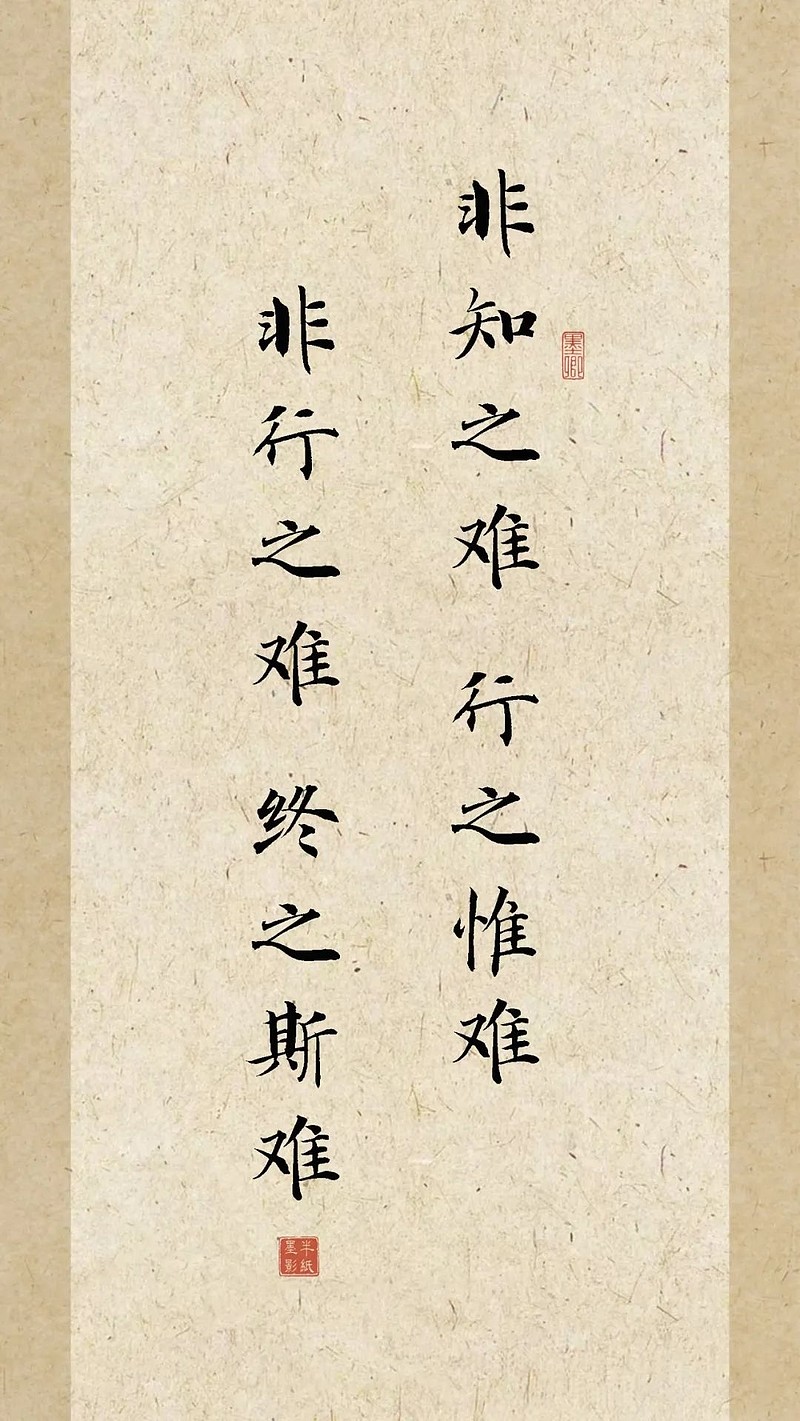 非知之难 行之惟难
非行之难 终之斯难
墨卿
半纸墨影